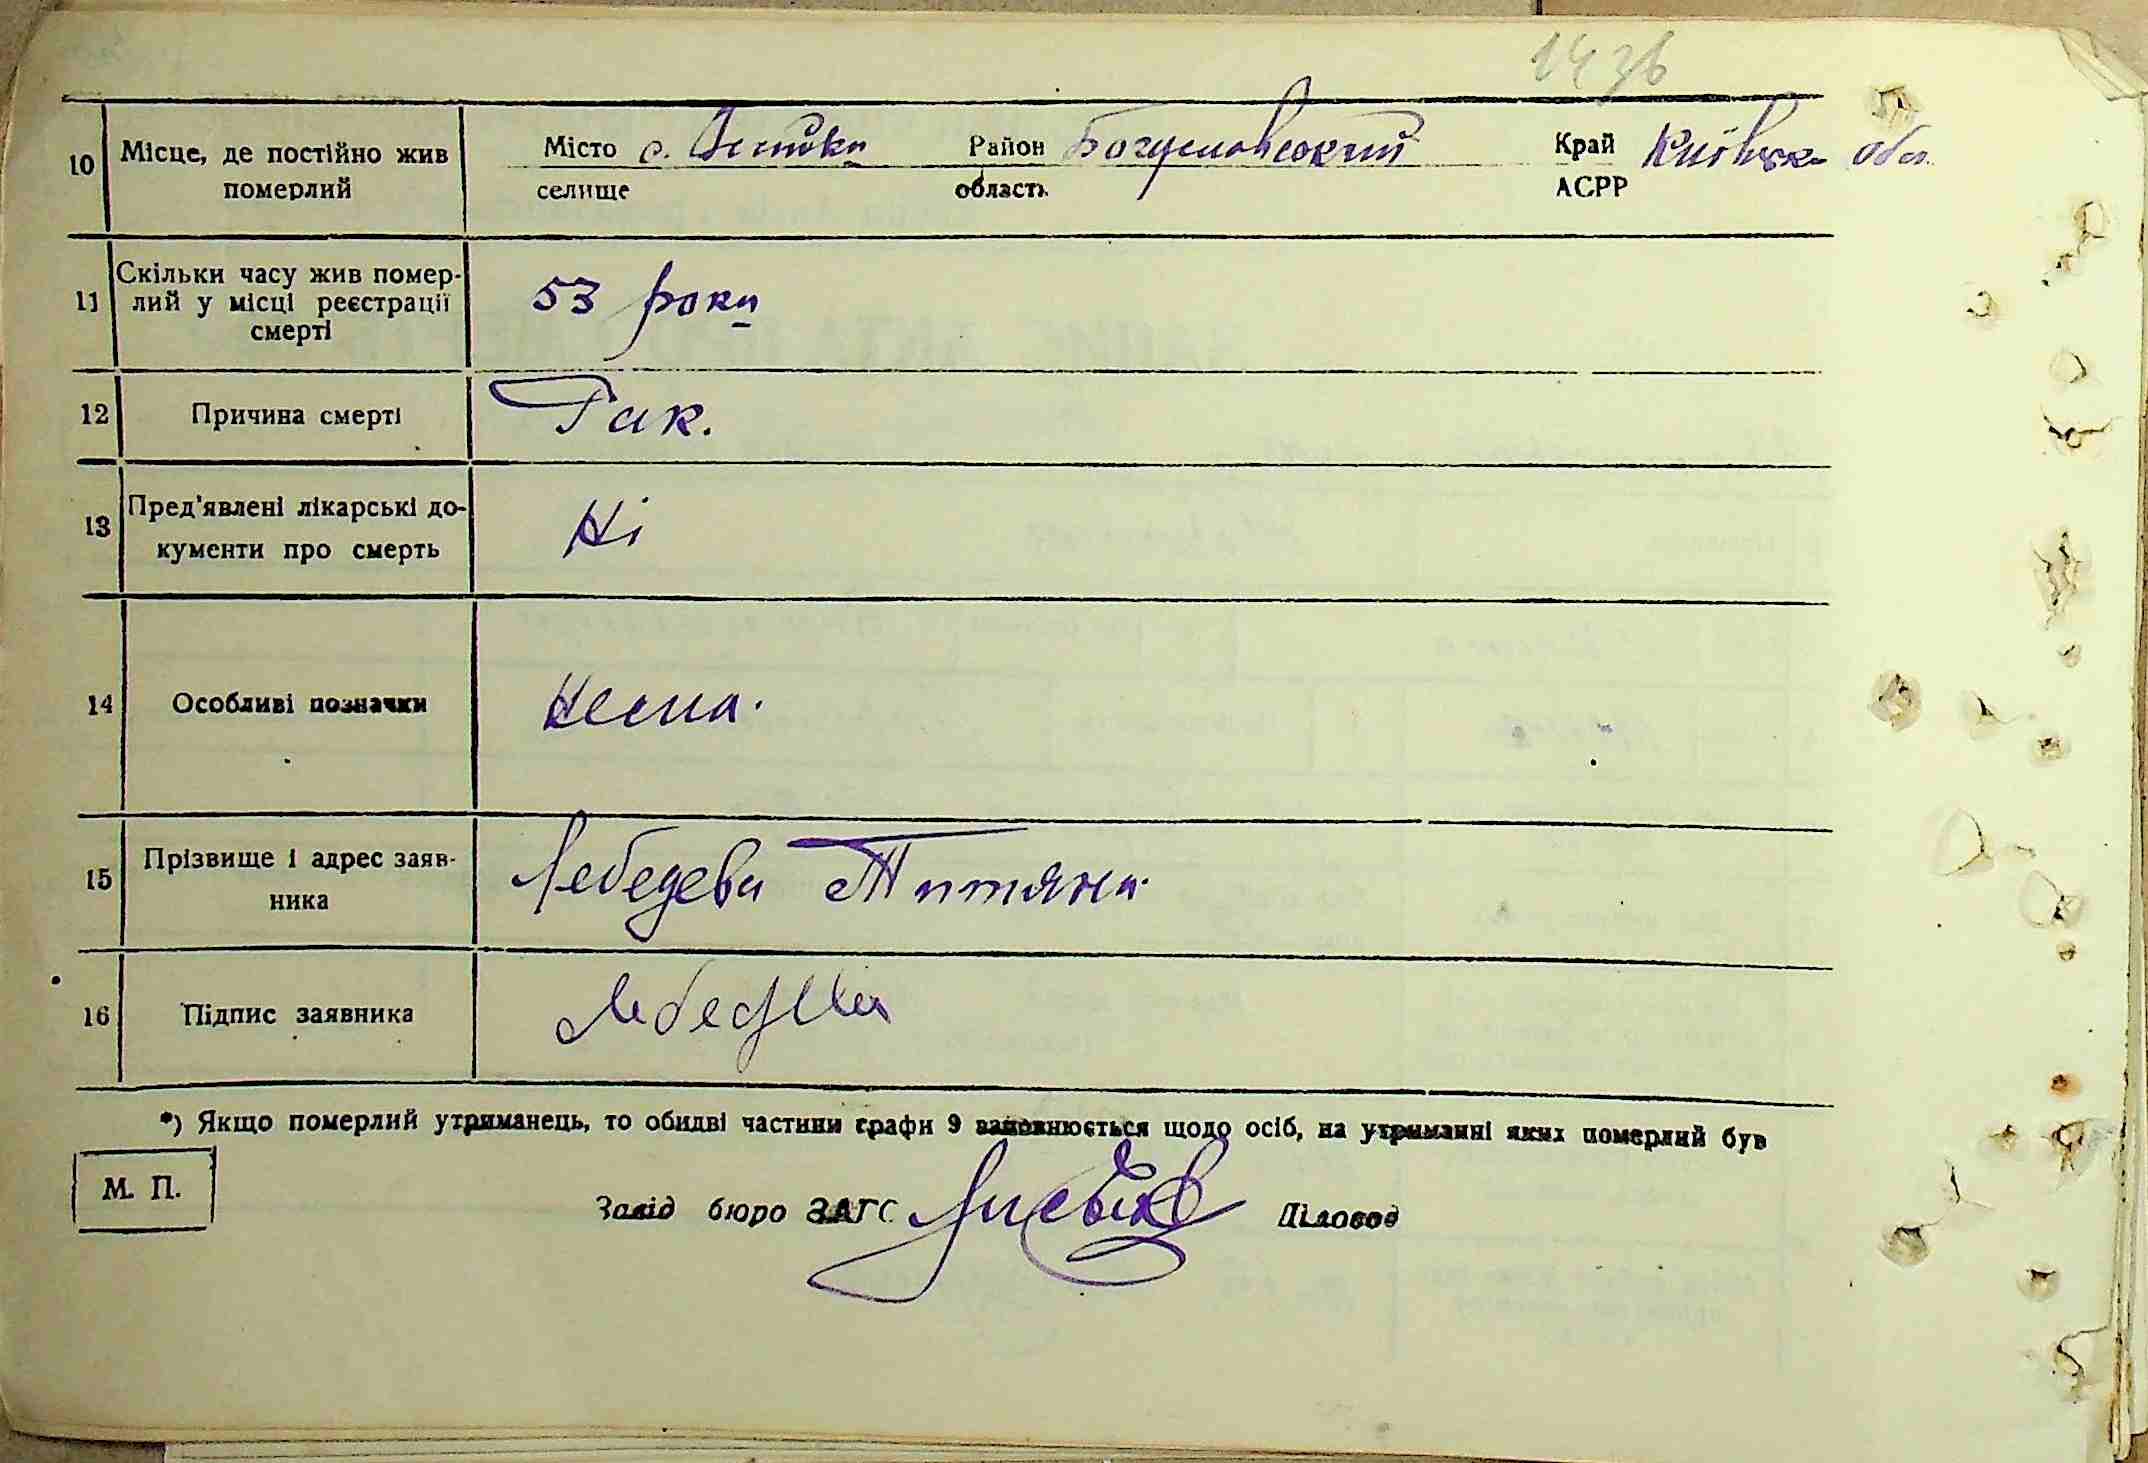 14 зв
10 Місце, де постійно жив Місто с. Район Богуславський Край Київськ обл
померлий селище область АСРР
11 Скільки часу жив помер-
лий у місці реєстрації 53 роки
смерті
12 Причина смерті Рак.
13 Пред'явлені лікарські до-
кументи про смерть Ні
14 Особливі позначки Нема.
15 Прізвище і адрес заяв-
ника Лебедева Титяна
16 Підпис заявника
*) Якщо померлий утриманець, то обидві частини графи 9 заповнюється щодо осіб, на утриманні яких померлий був
М. П.
Завід бюро ЗАГС Діловод